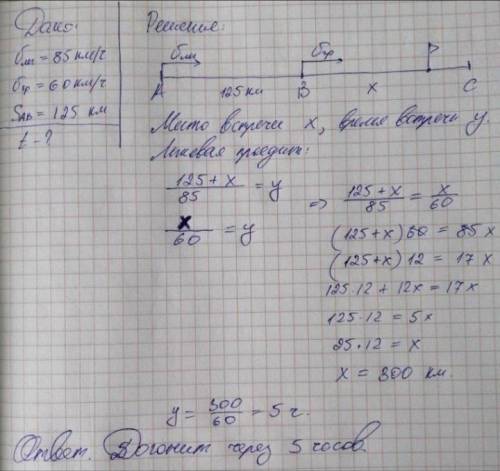 Дано:
υлег = 85 км/ч
υгр = 60 км/ч
SAB = 125 км
t - ?
Решение:
υлег υгр P
A 125 км B x C
Место встречи x, время встречи y.
Легковая проедит:
125 + x / 85 = y
x / 60 = y
=> 125 + x / 85 = x / 60
(125+x) 60 = 85 x
(125+x) 12 = 17 x
125·12 + 12x = 17x
125·12 = 5x
25·12 = x
x = 300 км.
y = 300 / 60 = 5 ч.
Ответ. Догонит через 5 часов.